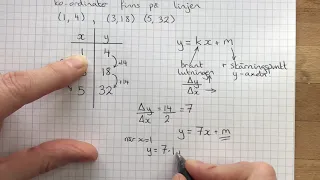 ko-ordinater finns på linjen
(1, 4) , (3,18) (5, 32)
x y
1 4
18 +14
5 32 +14
y = kx + m
brant lutningen
skärningspunkt y-axeln
Δy/Δx →
Δy/Δx = 14/2 = 7
y = 7x + m
när x=1
y = 7·1